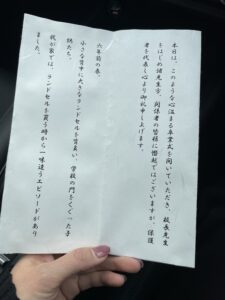 本日は、このような心温まる卒業式を開いていただき、校長先生
をはじめ諸先生方、関係者の皆様に僭越ではございますが、保護
者を代表し心より御礼申し上げます。
六年前の春、
小さな背中に大きなランドセルを背負い、学校の門をくぐった子
供たち。
我が家では、ランドセルを買う時から一味違うエピソードがあり
ました。